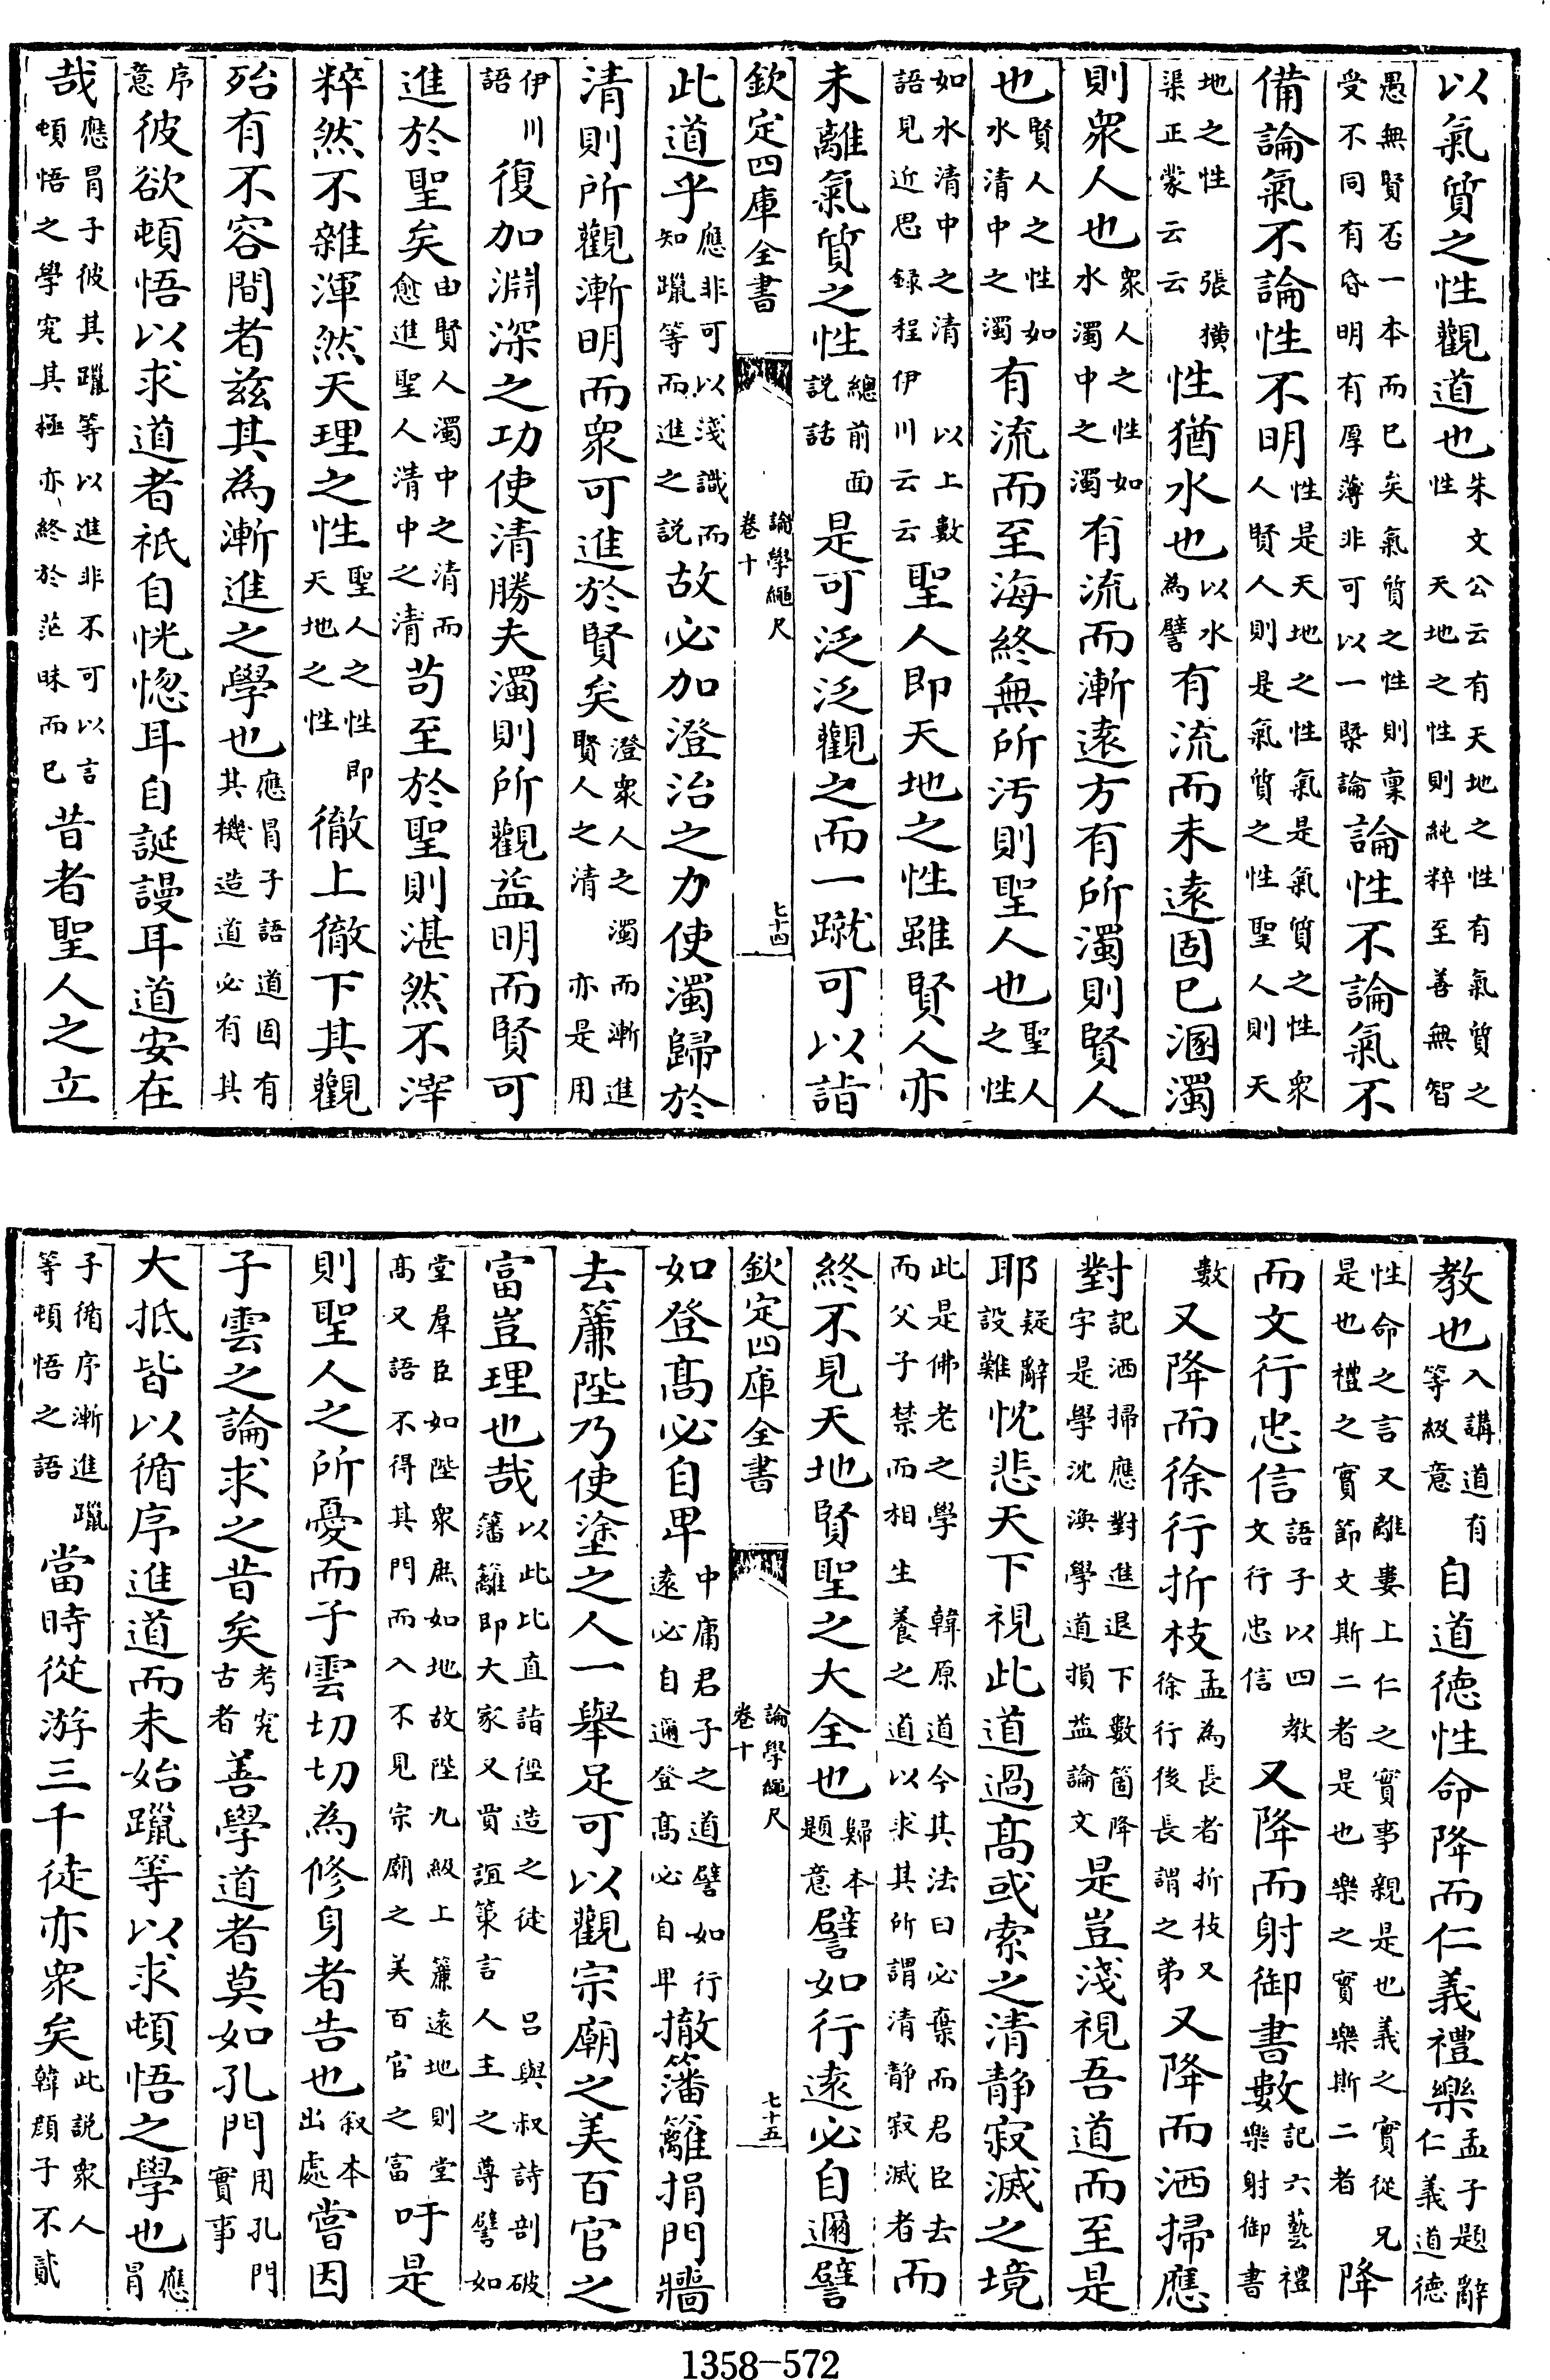 以氣質之性觀道也朱文公云有天地之性有氣質之性天地之性則純粹至善無智
愚無賢否一本而已矣氣質之性則稟受不同有昏明有厚薄非可以一槩論論性不論氣不
備論氣不論性不明性是天地之性氣是氣質之性衆人賢人則是氣質之性聖人則天
地之性張橫渠正蒙云云性猶水也以水為譬有流而未遠固已溷濁
則衆人也衆人之性如水濁中之濁有流而漸遠方有所濁則賢人
也賢人之性如水清中之濁有流而至海終無所汚則聖人也聖人之性
如水清中之清以上數語見近思録程伊川云云聖人即天地之性雖賢人亦
未離氣質之性總前面説話是可泛泛觀之而一蹴可以詣
欽定四庫全書 論學繩尺 卷十 七十四
此道乎應非可以淺識而知躐等而進之説故必加澄治之力使濁歸於
清則所觀漸明而衆可進於賢矣澄衆人之濁而漸進賢人之清亦是用
伊川語復加淵深之功使清勝夫濁則所觀益明而賢可
進於聖矣由賢人濁中之清而愈進聖人清中之清苟至於聖則湛然不滓
粹然不雜渾然天理之性聖人之性即天地之性徹上徹下其觀
殆有不容間者兹其為漸進之學也應冐子語道固有其機造道必有其
序意彼欲頓悟以求道者祇自恍惚耳自誕謾耳道安在
哉應冐子彼其躐等以進非不可以言頓悟之學究其極亦終於茫昧而已昔者聖人之立
教也入講道有等級意自道德性命降而仁義禮樂孟子題辭仁義道德
性命之言又離婁上仁之實事親是也義之實從兄是也禮之實節文斯二者是也樂之實樂斯二者降
而文行忠信語子以四教文行忠信又降而射御書數記六藝禮樂射御書
數又降而徐行折枝孟為長者折枝又徐行後長謂之弟又降而洒掃應
對記洒掃應對進退下數箇降字是學沈渙學道損益論文是豈淺視吾道而至是
耶疑辭設難忱悲天下視此道過髙或索之清静寂滅之境
此是佛老之學韓原道今其法曰必棄而君臣去而父子禁而相生養之道以求其所謂清静寂滅者而
終不見天地賢聖之大全也歸本題意譬如行遠必自邇譬
欽定四庫全書 論學繩尺 卷十 七十五
如登髙必自卑中庸君子之道譬如行遠必自邇登髙必自卑撤籓籬捐門牆
去簾陛乃使塗之人一舉足可以觀宗廟之美百官之
富豈理也哉以此比直詣徑造之徒吕與叔詩剖破籓籬即大家又賈誼策言人主之尊譬如
堂羣臣如陛衆庶如地故陛九級上簾遠地則堂髙又語不得其門而入不見宗廟之美百官之富吁是
則聖人之所憂而子雲切切為修身者告也叙本出處嘗因
子雲之論求之昔矣考究古者善學道者莫如孔門用孔門實事
大抵皆以循序進道而未始躐等以求頓悟之學也應冐
子循序漸進躐等頓悟之語當時從游三千徒亦衆矣此説衆人韓顔子不貳
1358-572